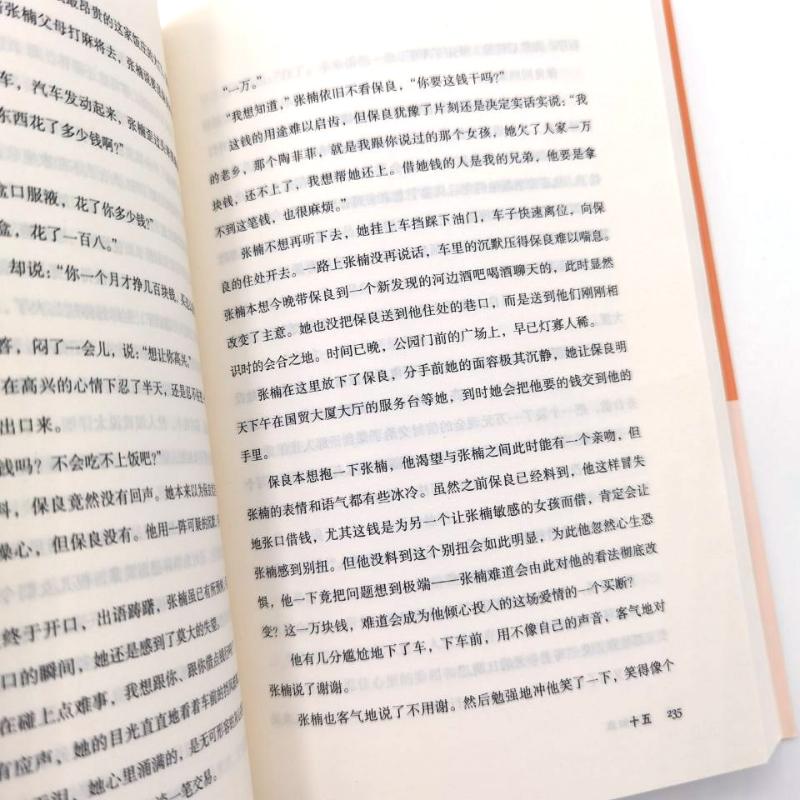 最昂贵的这家饭店
张楠父母打麻将去，张楠说
车，汽车发动起来，张楠
东西花了多少钱啊？”
盒口服液，花了你多少钱？”
盒，花了一百八。”
却说：“你一个月才挣几百块钱，
答，闷了一会儿，说：“想让你高兴。”
在高兴的心情下忍了半天，还是忍不住
出口来。
钱吗？不会吃不上饭吧？”
料，保良竟然没有回声。她本来以为
桑心，但保良没有。他用一阵可疑的
终于开口、出语踌躇，张楠虽已有所预
口的瞬间，她还是感到了莫大的失望。
在碰上点难事，我想跟你、跟你借点钱
有应声，她的目光直直地看着车前的挡风
无泪，她心里涌满的，是无可形容
一笔交易。
“一万。”
“我想知道，”张楠依旧不看保良，“你要这钱干吗？”
这钱的用途难以启齿，但保良犹豫了片刻还是决定实话实说：“我
的老乡，那个陶菲菲，就是我跟你说过的那个女孩，她欠了人家一万
块钱，还不上了，我想帮她还上。借她钱的人是我的兄弟，他要是拿
不到这笔钱，也很麻烦。”
张楠不想再听下去，她挂上车挡踩下油门，车子快速离位，向保
良的住处开去。一路上张楠没再说话，车里的沉默压得保良难以喘息。
张楠本想今晚带保良到一个新发现的河边酒吧喝酒聊天的，此时显然
改变了主意。她也没把保良送到他住处的巷口，而是送到他们刚刚相
识时的会合之地。时间已晚，公园门前的广场上，早已灯寡人稀。
张楠在这里放下了保良，分手前她的面容极其沉静，她让保良明
天下午在国贸大厦大厅的服务台等她，到时她会把他要的钱交到他的
手里。
保良本想抱一下张楠，他渴望与张楠之间此时能有一个亲吻，但
张楠的表情和语气都有些冰冷。虽然之前保良已经料到，他这样冒失
地张口借钱，尤其这钱是为另一个让张楠敏感的女孩而借，肯定会让
张楠感到别扭。但他没料到这个别扭会如此明显，为此他忽然心生恐
惧，他一下竟把问题想到极端——张楠难道会由此对他的看法彻底改
变？这一万块钱，难道会成为他倾心投入的这场爱情的一个买断？
他有几分尴尬地下了车，下车前，用不像自己的声音，客气地对
张楠说了谢谢。
张楠也客气地说了不用谢。然后勉强地冲他笑了一下，笑得像个
十五 235